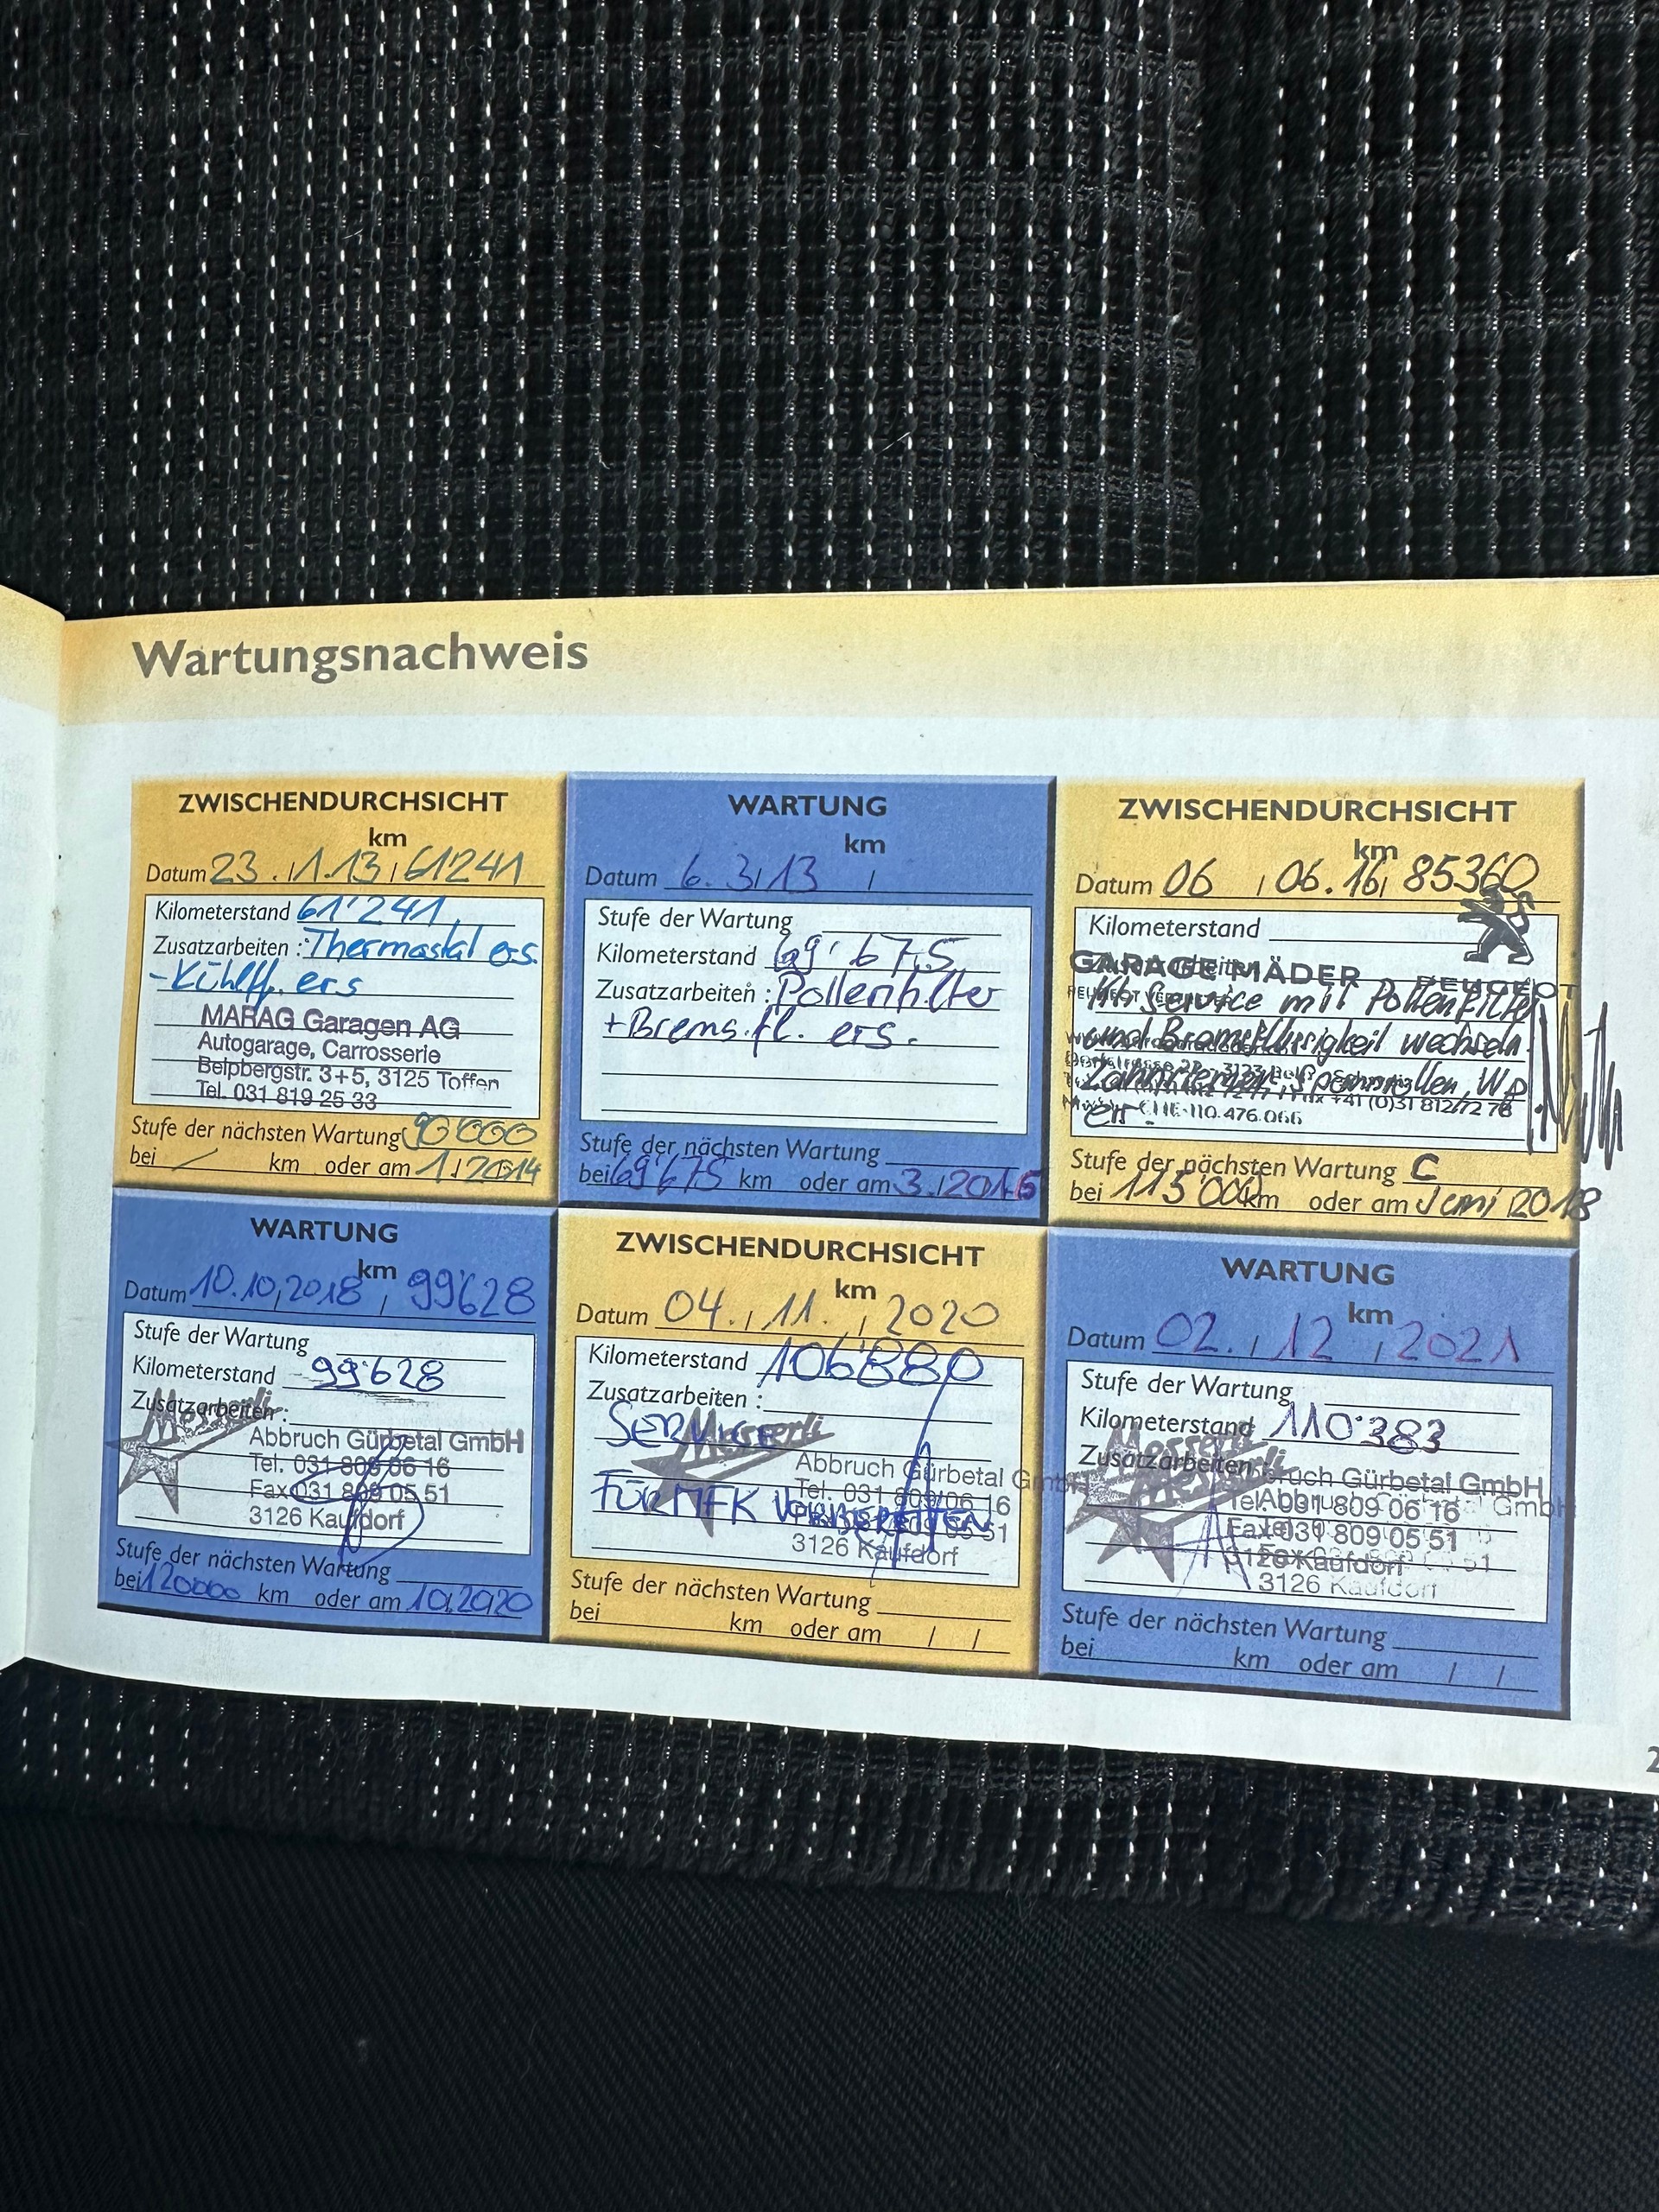 Wartungsnachweis
ZWISCHENDURCHSICHT
km
Datum 23. 1.13 61241
Kilometerstand 61'241
Zusatzarbeiten : Thermostat ers.
- Kühlfl. ers
MARAG Garagen AG
Autogarage, Carrosserie
Belpbergstr. 3+5, 3125 Toffen
Tel. 031 819 25 33
Stufe der nächsten Wartung 90'000
bei / km oder am 1./2014
WARTUNG
km
Datum 6. 3 / 13 /
Stufe der Wartung
Kilometerstand 69'675
Zusatzarbeiten : Pollenfilter
+ Brems.fl. ers.
Stufe der nächsten Wartung
bei 69'675 km oder am 3./2015
ZWISCHENDURCHSICHT
km
Datum 06 / 06.16 / 85360
Kilometerstand
GARAGE MÄDER PEUGEOT
Service mit Pollenfilter
und Bremsflüssigkeit wechseln.
Zahnriemen, Spannrollen, WP
ers.
+41 (0)31 812 72 78
CHE-110.476.066
Stufe der nächsten Wartung C
bei 115'000 km oder am Juni 2018
WARTUNG
km
Datum 10.10.2018 / 99'628
Stufe der Wartung
Kilometerstand 99'628
Zusatzarbeiten :
Messerli
Abbruch Gürbetal GmbH
Tel. 031 809 06 16
Fax 031 809 05 51
3126 Kaufdorf
Stufe der nächsten Wartung
bei 120000 km oder am 10.2020
ZWISCHENDURCHSICHT
km
Datum 04. / 11. / 2020
Kilometerstand 106'880
Zusatzarbeiten :
SERVICE
Messerli
Abbruch Gürbetal GmbH
Tel. 031 809 06 16
FÜR MFK VORBEREITEN
3126 Kaufdorf
Stufe der nächsten Wartung
bei km oder am / /
WARTUNG
km
Datum 02. / 12 / 2021
Stufe der Wartung
Kilometerstand 110'383
Zusatzarbeiten :
Messerli
Abbruch Gürbetal GmbH
Tel. 031 809 06 16
Fax 031 809 05 51
3126 Kaufdorf
3126 Kaufdorf
Stufe der nächsten Wartung
bei km oder am / /
2